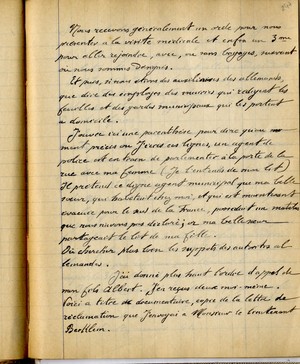 Nous recevons généralement un ordre pour nous
présenter à la visite médicale et enfin un 3me
pour aller rejoindre, avec, ou sans bagages, suivant
où nous sommes désignés.
Et puis, si nous étions des auxiliaires des allemands,
que dire des employés des mairies qui rédigent les
feuilles et des gardes municipaux qui les portent
à domicile.
J'ouvre ici une parenthèse pour dire qu'au mo-
ment précis où j'écris ces lignes, un agent de
police est en train de parlementer à la porte de la
rue avec ma femme (Je l'entends de mon lit)
Il prétend ce digne agent municipal que ma belle
soeur, qui habitait chez moi, et qui est maintenant
évacuée pour le sud de la France, possédait un matelas
que nous n'avons pas déclaré; or ma belle soeur
partageait le lit de ma fille.
Où chercher plus loin les suppôts des autorités al-
lemandes.
J'ai donné plus haut l'ordre d'appel de
mon fils Albert. J'en reçus deux moi-même.
Voici à titre de documentaire, copie de la lettre de
réclamation que j'envoyai à Monsieur le lieutenant